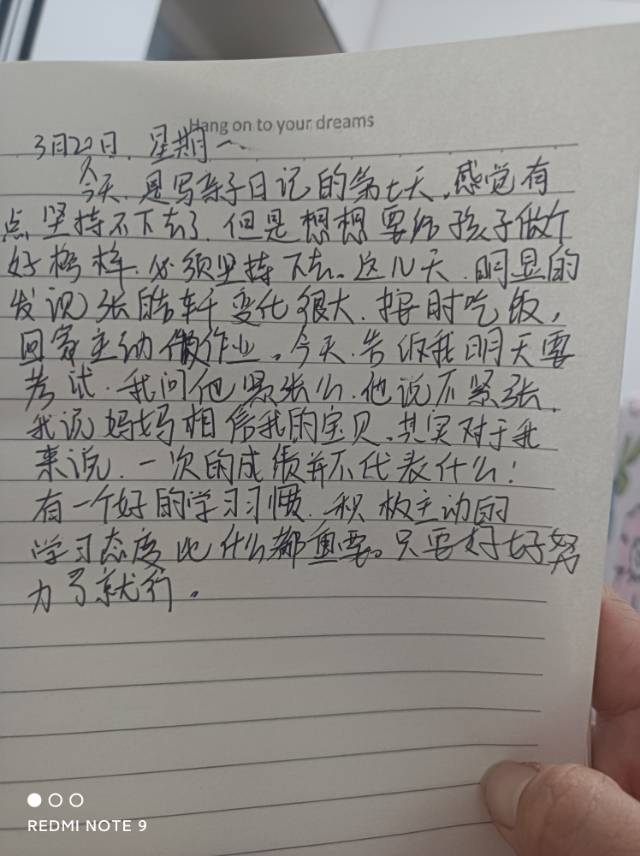 Hang on to your dreams
3月22日, 星期一.
今天,是写亲子日记的第七天,感觉有
点坚持不下去了,但是想想要给孩子做个
好榜样,必须坚持下去。这几天,明显的
发现张皓轩变化很大,按时吃饭,
回家主动做作业。今天,告诉我明天要
考试,我问他紧张么,他说不紧张,
我说妈妈相信我的宝贝,其实对于我
来说,一次的成绩并不代表什么!
有一个好的学习习惯,积极主动的
学习态度比什么都重要。只要好好努
力了就行。
REDMI NOTE 9